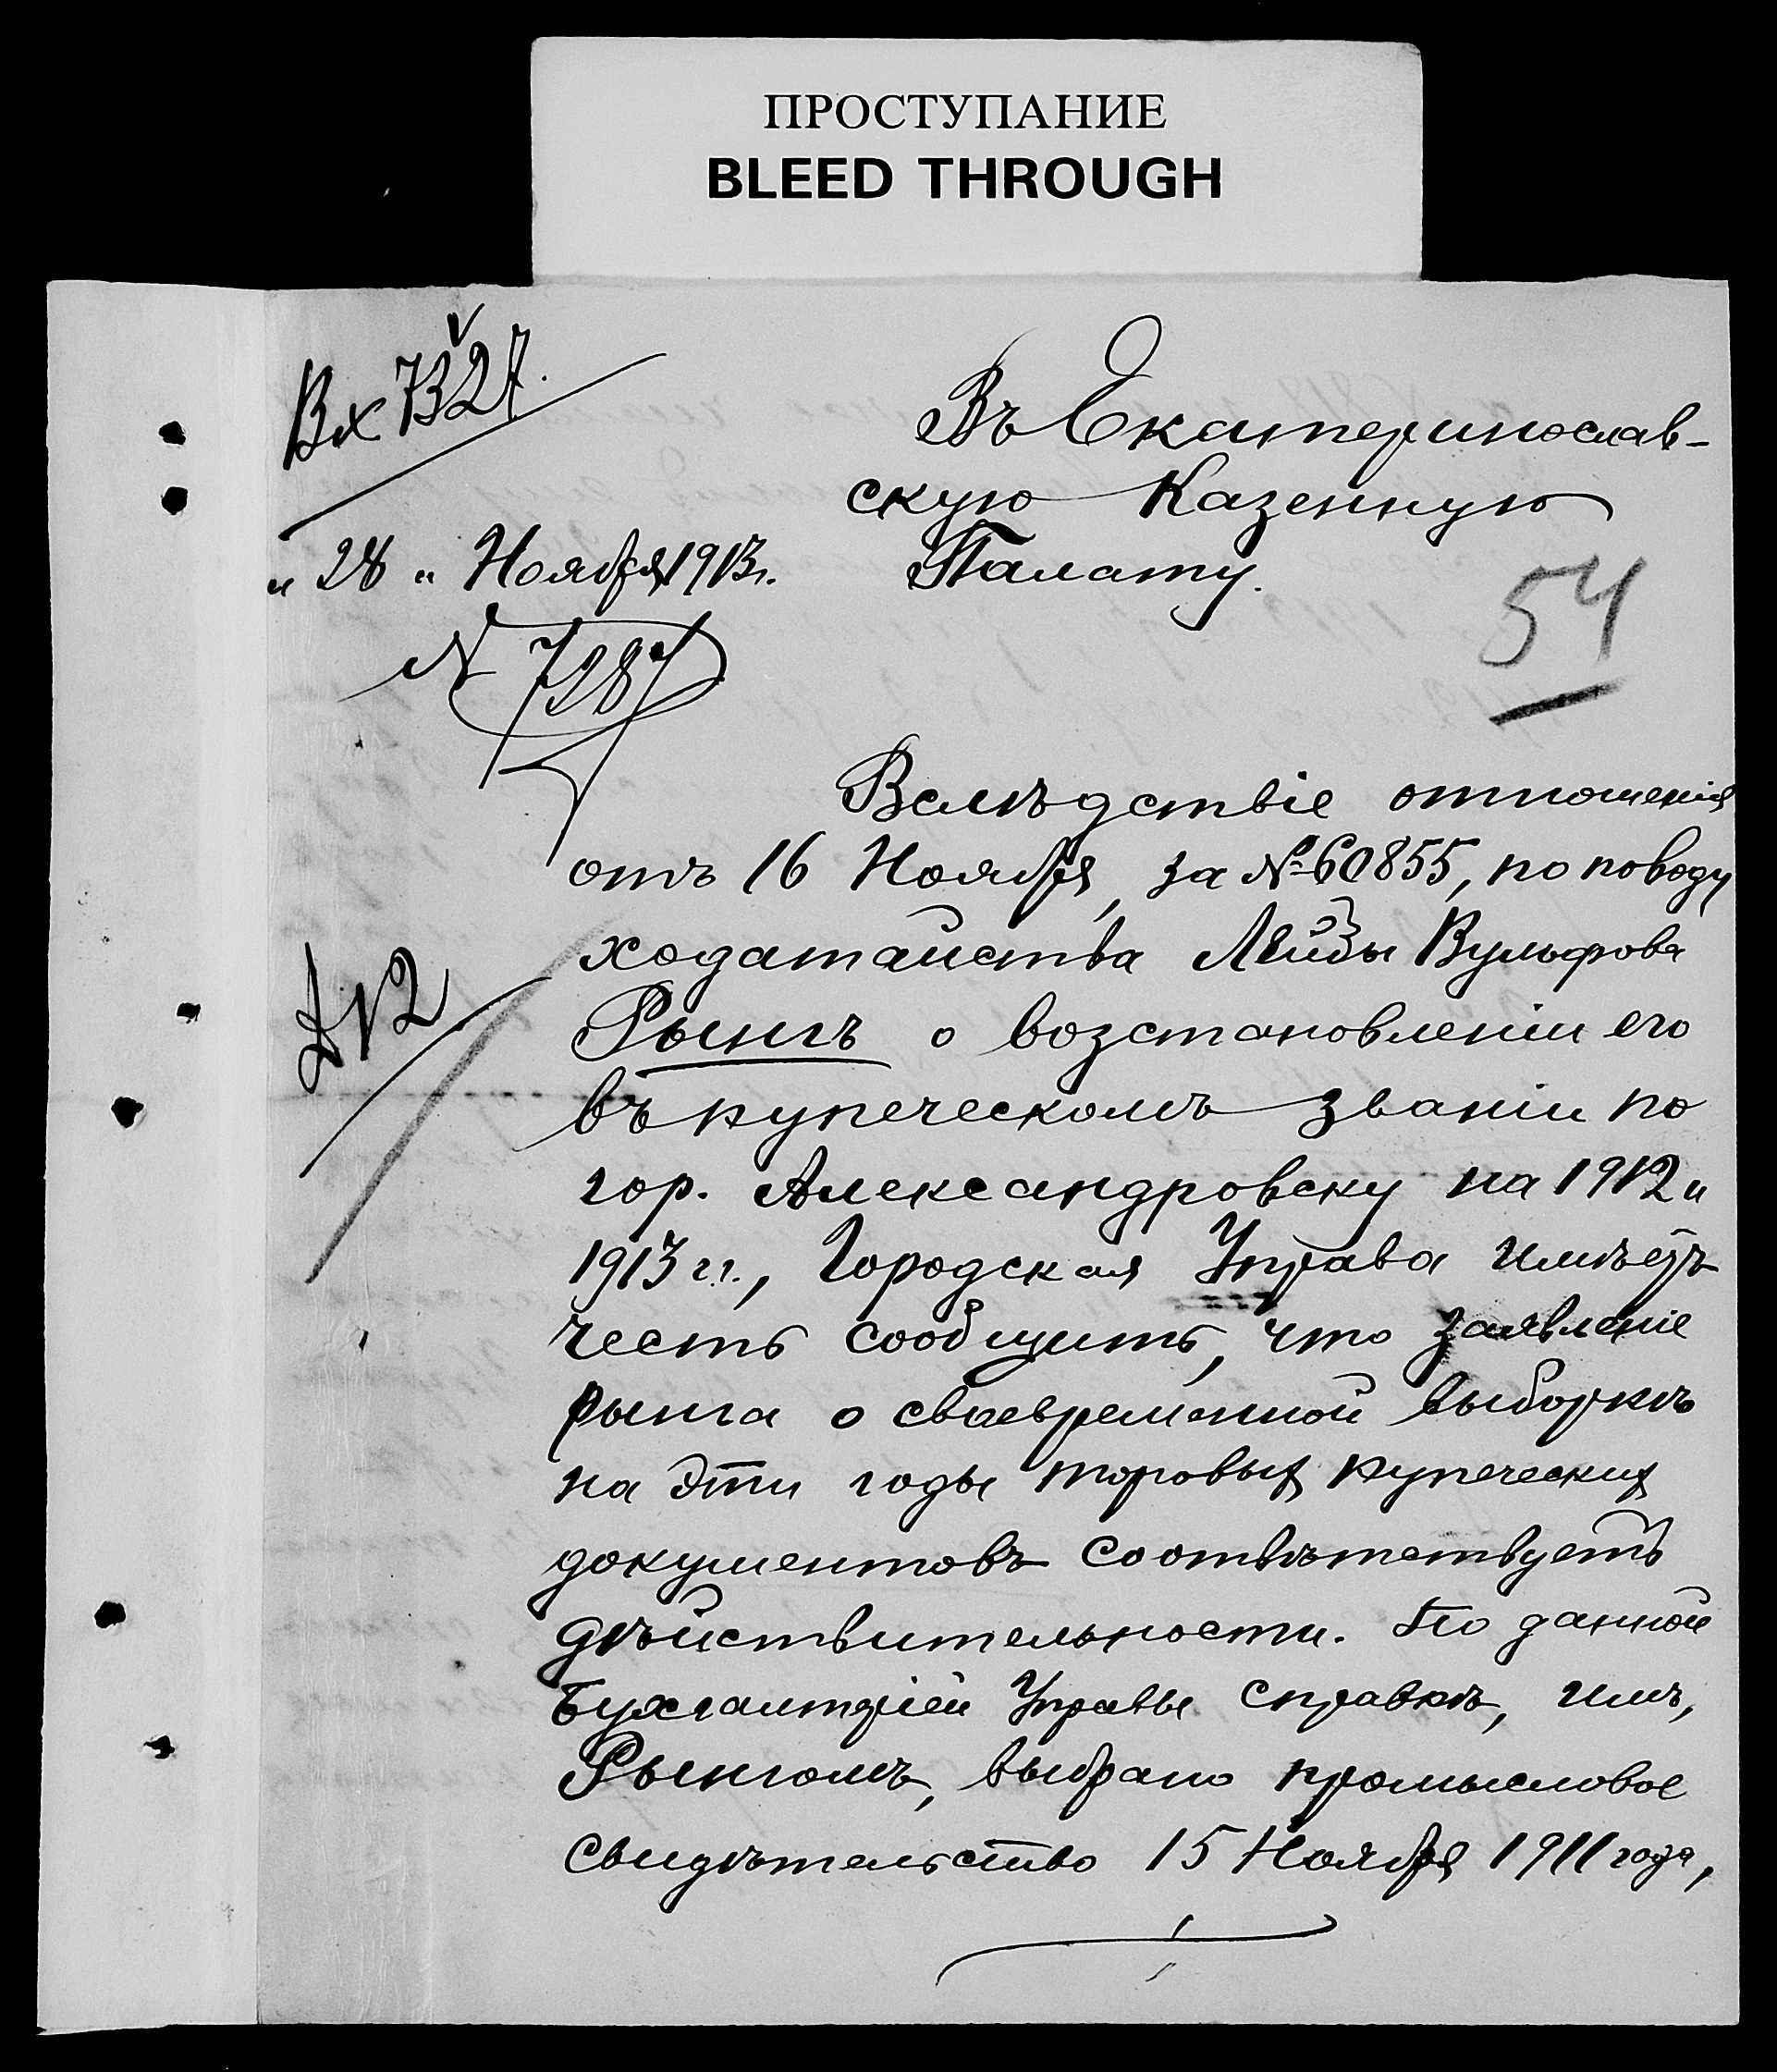 ПРОСТУПАНИЕ
BLEED THROUGH
Вх 7327.
Въ Екатеринослав-
скую Казенную
Палату.
„28" Ноября 1913 г.
№ 7287
54
Вслѣдствіе отношенія
отъ 16 Ноября, за № 60855, по поводу
ходатайства Лейзы Вульфова
Рынгъ о возстановленіи его
въ купеческомъ званіи по
гор. Александровску на 1912 и
1913 г.г., Городская Управа имѣетъ
честь сообщить, что заявленіе
Рынга о своевременной выборкѣ
на эти годы торовых купеческих
документовъ соотвѣтствуетъ
дѣйствительности. По данной
Бухгалтеріей Управы справкѣ, имъ,
Рынгомъ, выбрано промысловое
свидѣтельство 15 Ноября 1911 года,